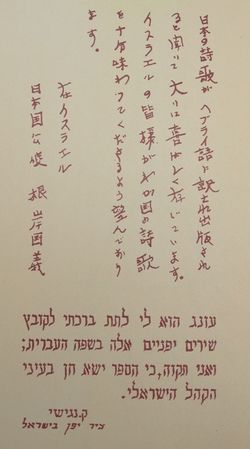 日本の詩歌が ヘブライ語に訳され出版され
ると聞いて 大いに喜ばしく存じています。
イスラエルの皆様がわが国の詩歌
を十分味わってくださるよう望んでおり
ます。
在イスラエル
日本国公使 根岸国義
עונג הוא לי לתת ברכתי לקובץ
שירים יפניים אלה בשפה העברית;
ואני תקוה, כי הספר ישא חן בעיני
הקהל הישראלי.
ק. נגישי
ציר יפן בישראל